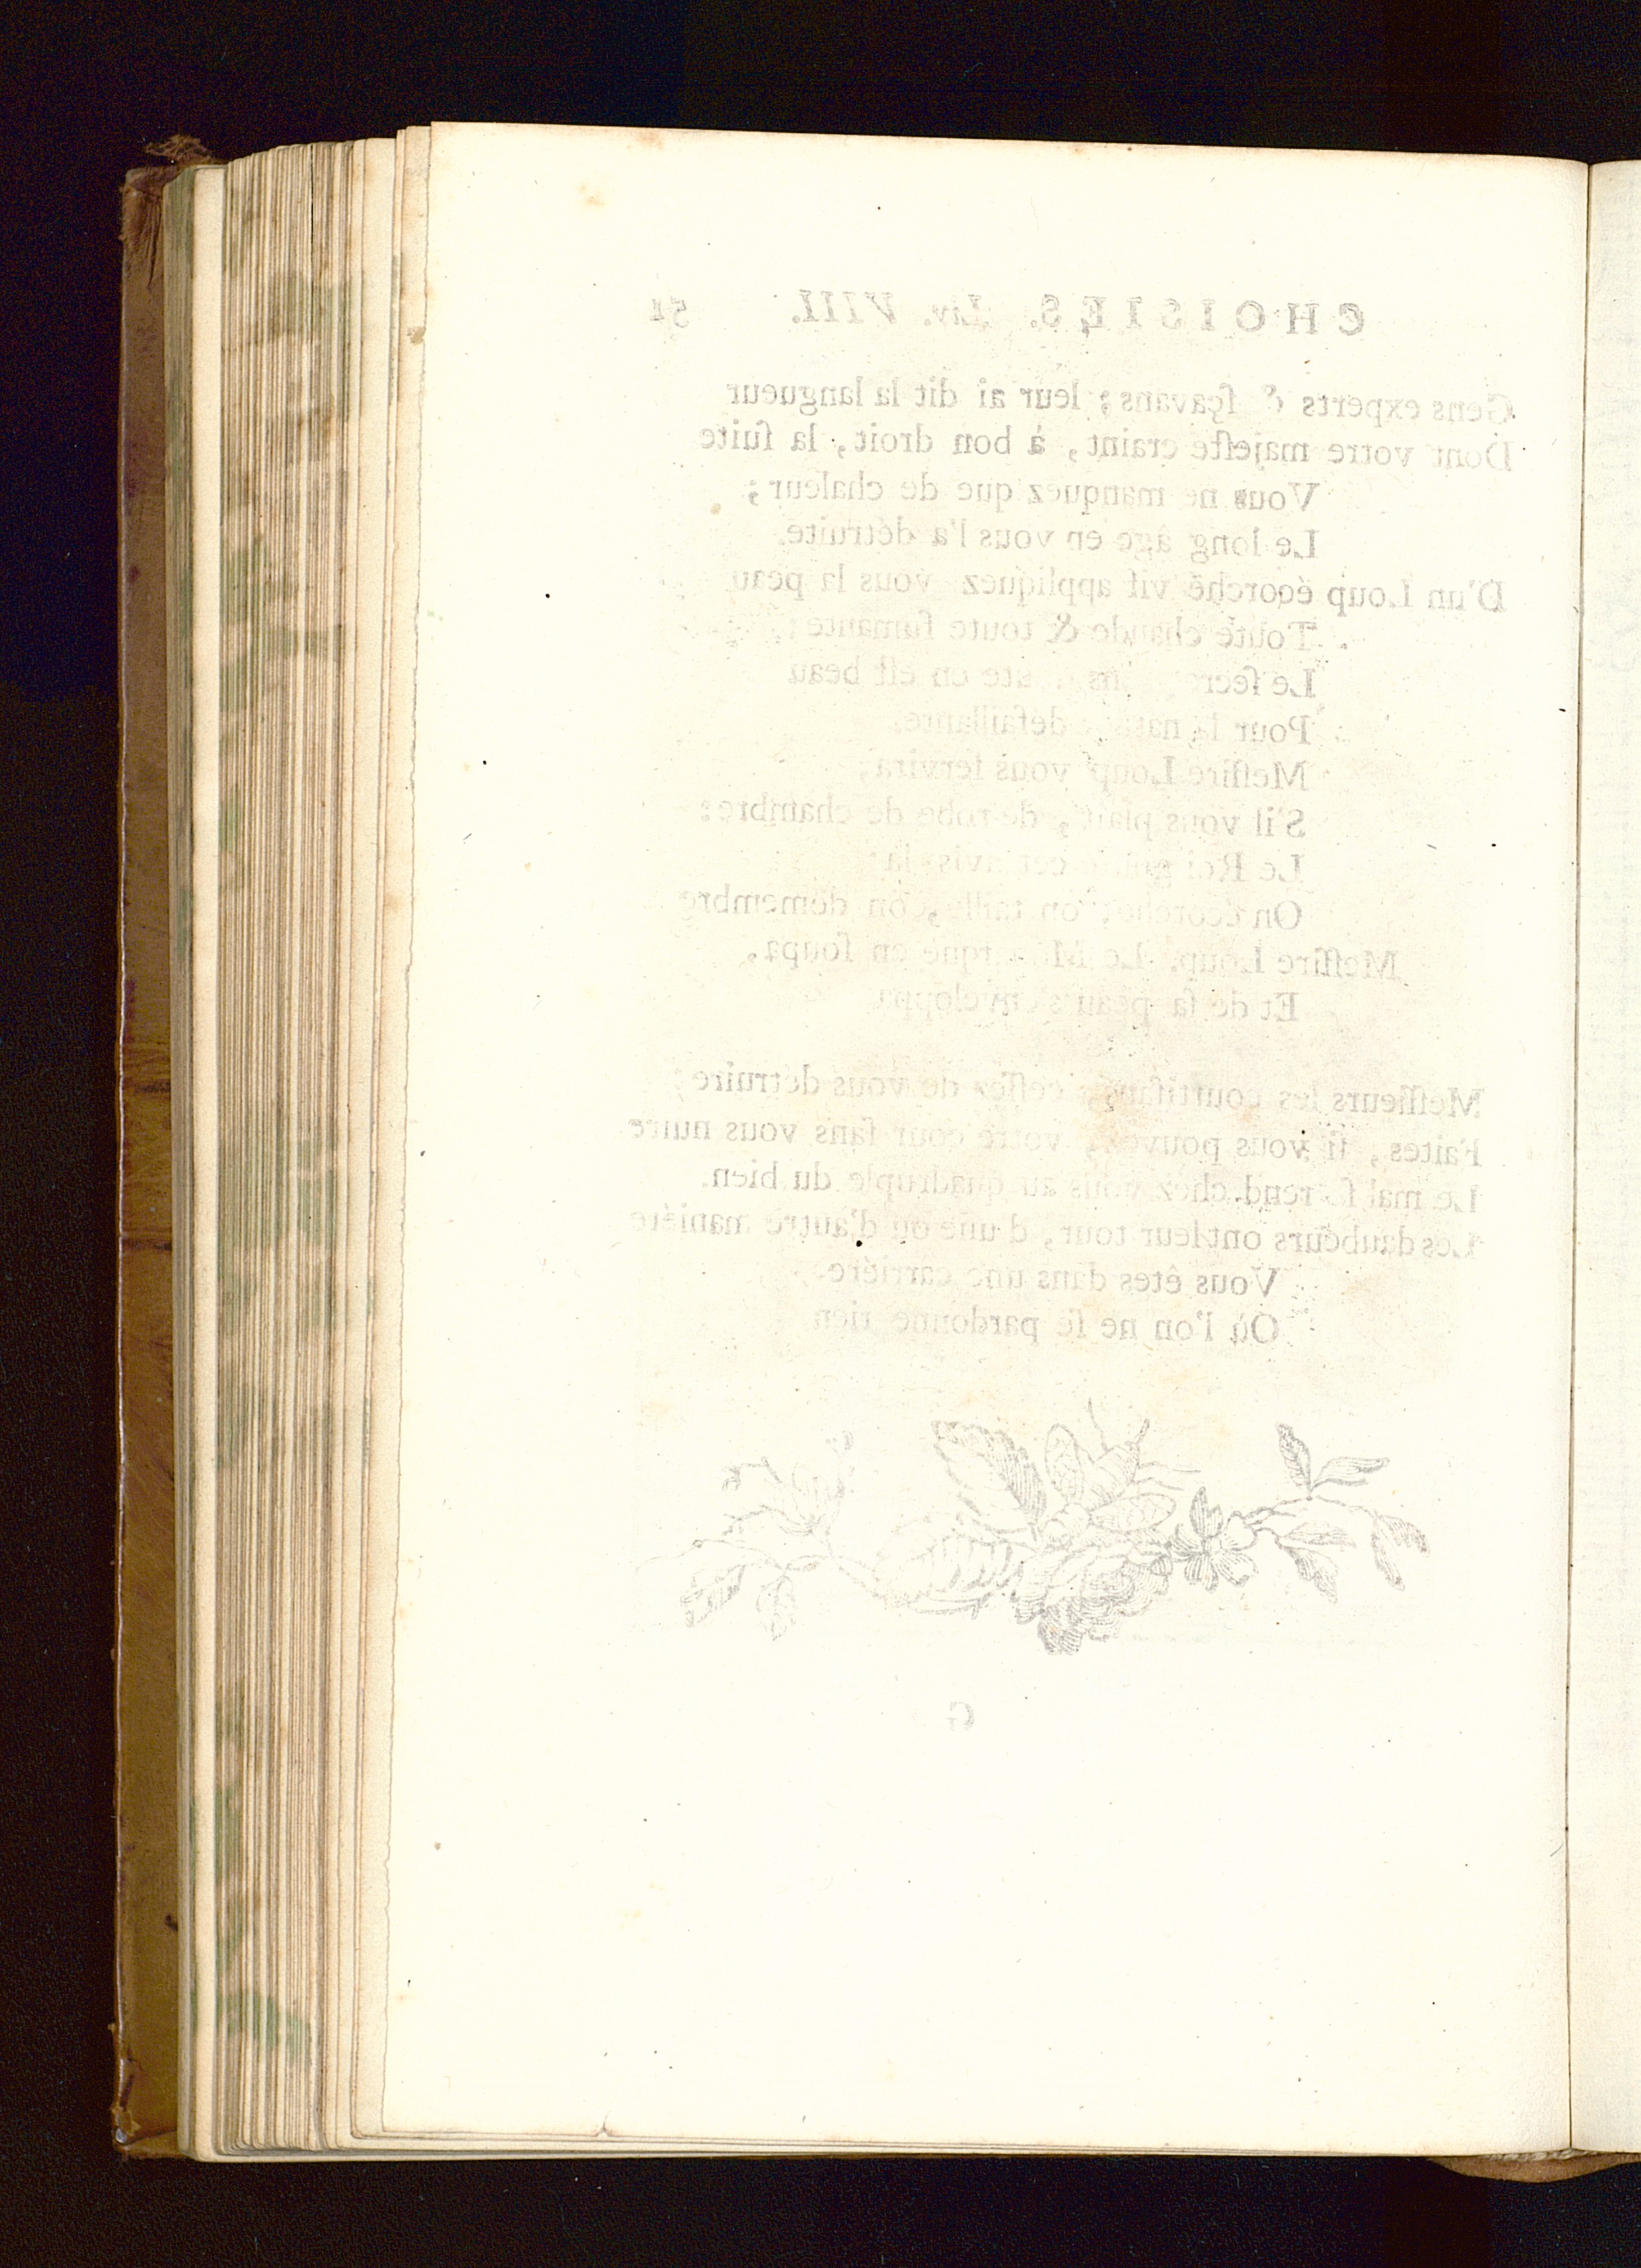 CHOISIES. Liv. VIII. 51
Gens experts & ſçavans; leur ai dit la langueur
Dont votre majeſte craint, à bon droit, la ſuite
Vous ne manquez que de chaleur;
Le long âge en vous l'a détruite.
D'un Loup écorché vif appliquez vous la peau
Toute chaude & toute fumante;
Le ſecre ute en eſt beau
Pour la nat défaillante.
Meſſire Loup vous ſervira,
S'il vous plaît, de robe de chambre:
Le Roi goûte cet avis-là:
On écorche, on taille, on démembre
Meſſire Loup. Le M arque en ſoupa,
Et de ſa peau s'enveloppa
Meſſieurs les courtiſans, ceſſez de vous détruire;
Faites, ſi vous pouvez, votre cour ſans vous nuire
Le mal ſe rend chez vous au quadruple du bien.
Les daubeurs ont leur tour, d'une ou d'autre maniére
Vous êtes dans une carriére
Où l'on ne ſe pardonne rien
G